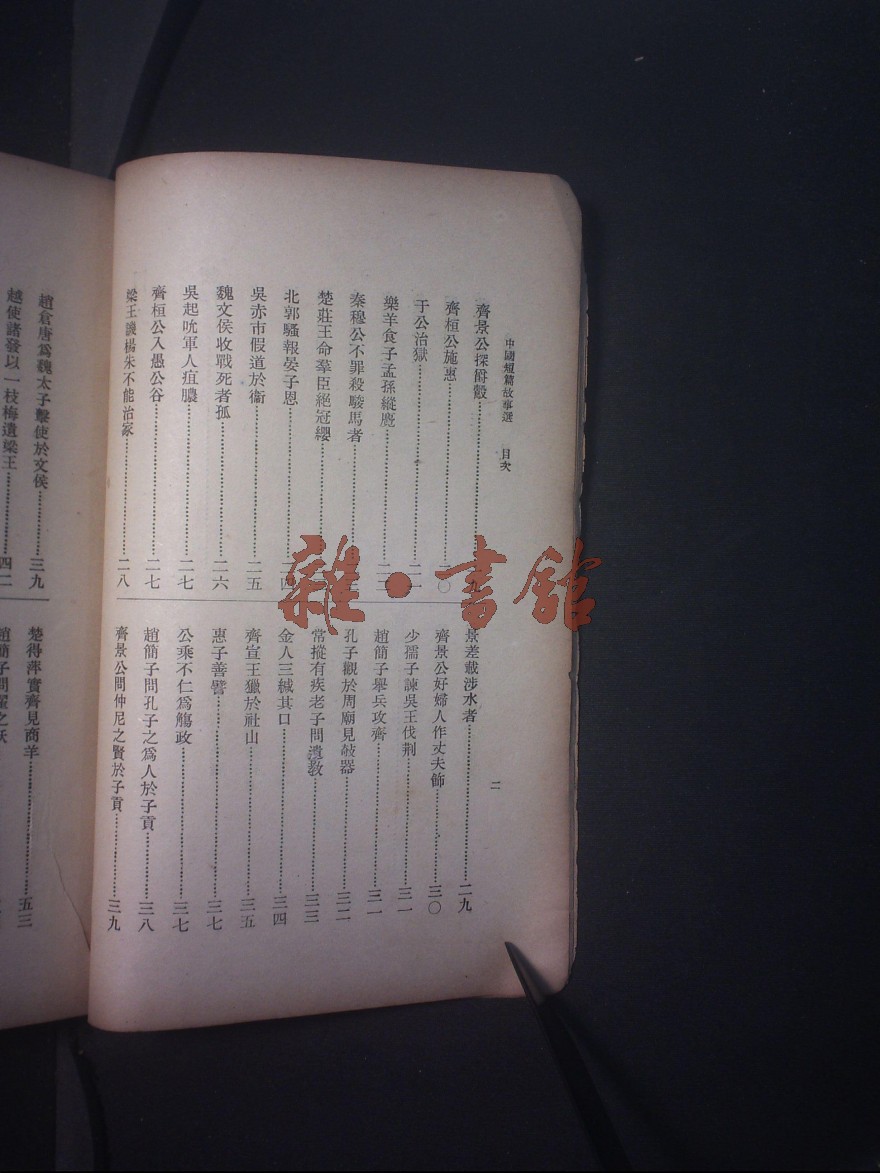 中國短篇故事選　目次
二
齊景公探爵鷇
齊桓公施惠……二〇
于公治獄……二一
樂羊食子孟孫縱麑……二二
秦穆公不罪殺駿馬者
楚莊王命羣臣絕冠纓
北郭騷報晏子恩……四
吳赤市假道於衞……二五
魏文侯收戰死者孤……二六
吳起吮軍人疽膿……二七
齊桓公入愚公谷……二七
梁王譏楊朱不能治家……二八
景差載涉水者……二九
齊景公好婦人作丈夫飾……三〇
少孺子諫吳王伐荆……三一
趙簡子舉兵攻齊……三一
孔子觀於周廟見敧器……三二
常摐有疾老子問遺敎……三三
金人三緘其口……三四
齊宣王獵於社山……三五
惠子善譬……三七
公乘不仁爲觴政……三七
趙簡子問孔子之爲人於子貢……三八
齊景公問仲尼之賢於子貢……三九
趙倉唐爲魏太子擊使於文侯……三九
越使諸發以一枝梅遺梁王……四二
楚得萍實齊見商羊……五三
趙簡子問翟之妖
雜·書館